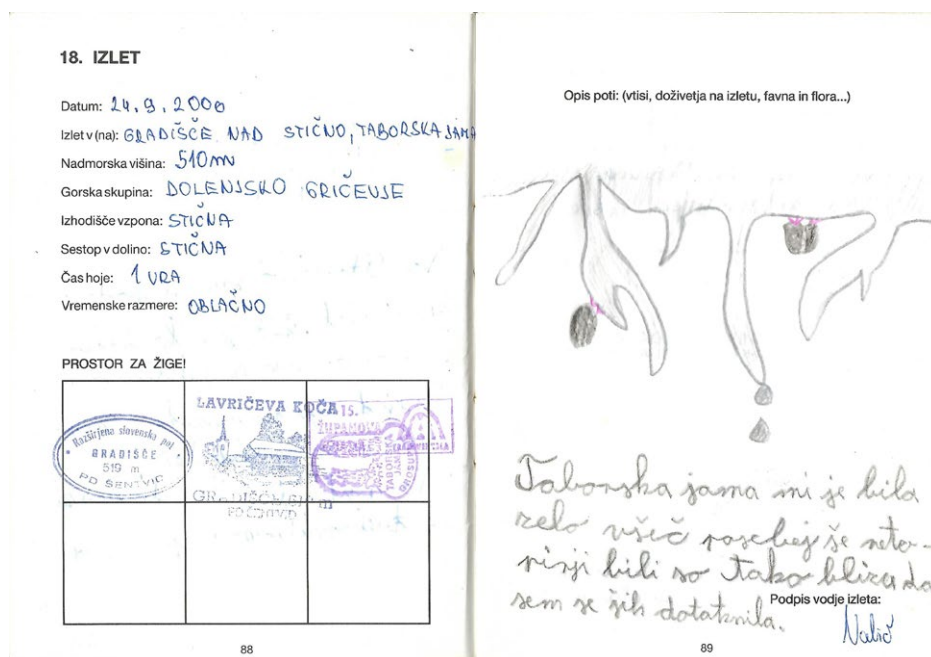 18. IZLET
Datum: 24.9.2000
Izlet v (na): GRADIŠČE NAD STIČNO, TABORSKA JAMA
Nadmorska višina: 510m
Gorska skupina: DOLENJSKO GRIČEVJE
Izhodišče vzpona: STIČNA
Sestop v dolino: STIČNA
Čas hoje: 1 URA
Vremenske razmere: OBLAČNO
PROSTOR ZA ŽIGE!
Razširjena slovenska pot
GRADIŠČE
519 m
PD ŠENTVID
LAVRIČEVA KOČA
15.
ŽUPANOVA
TABORSKA
JAMA
GROSUPLJE
88
Opis poti: (vtisi, doživetja na izletu, favna in flora...)
Taborska jama mi je bila
zelo všeč posebej še neto-
pirji bili so tako blizu da
sem se jih dotaknila.
Podpis vodje izleta:
89